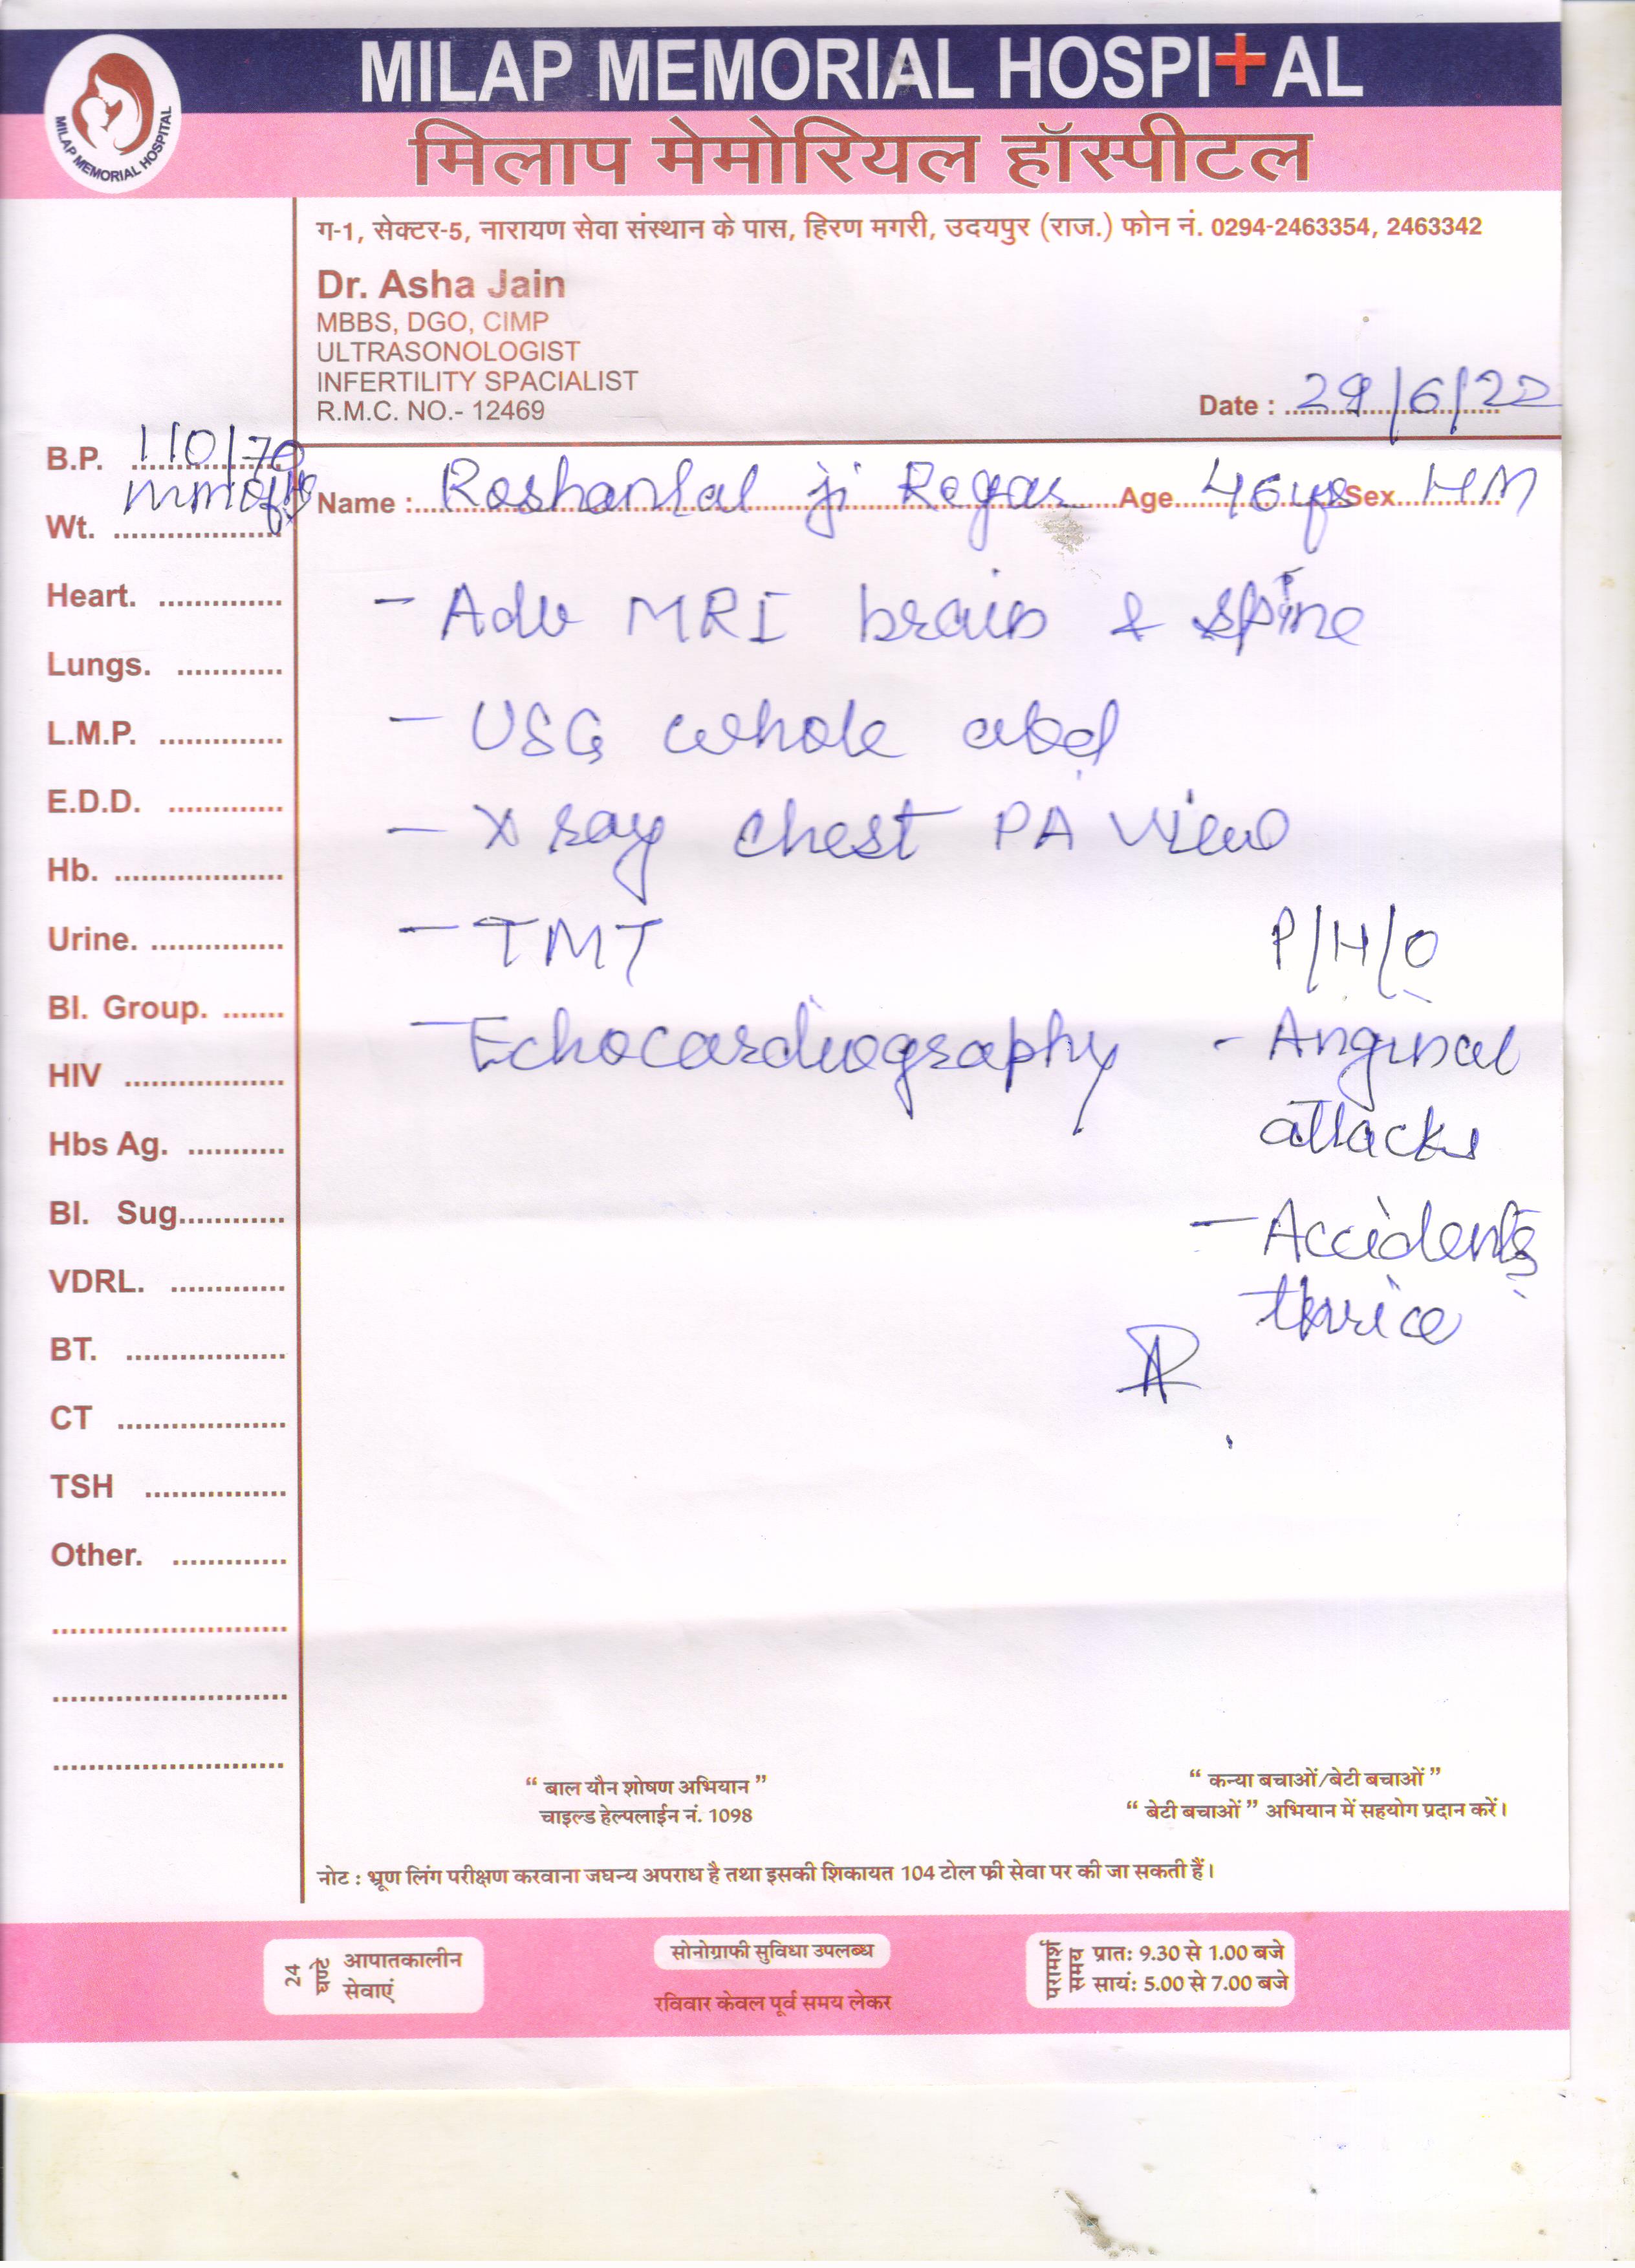 MILAP MEMORIAL HOSPITAL
मिलाप मेमोरियल हॉस्पीटल
MILAP MEMORIAL HOSPITAL
ग-1, सेक्टर-5, नारायण सेवा संस्थान के पास, हिरण मगरी, उदयपुर (राज.) फोन नं. 0294-2463354, 2463342
Dr. Asha Jain
MBBS, DGO, CIMP
ULTRASONOLOGIST
INFERTILITY SPACIALIST
R.M.C. NO.- 12469
Date : /6/22
B.P. 110/70
mmofHg
Name : Roshanlal ji Regar Age 46 yrs Sex HM
Wt.
Heart.
- Adv MRI brain & spine
Lungs.
L.M.P.
- USG whole abd
E.D.D.
- X ray chest PA view
Hb.
Urine.
- TMT
P/H/O
Bl. Group.
- Echocardiography
- Anginal
attacks
HIV
Hbs Ag.
Bl. Sug.
- Accidents
thrice
VDRL.
BT.
CT
TSH
Other.
“ बाल यौन शोषण अभियान ”
चाइल्ड हेल्पलाईन नं. 1098
“ कन्या बचाओं/बेटी बचाओं ”
“ बेटी बचाओं ” अभियान में सहयोग प्रदान करें।
नोट : भ्रूण लिंग परीक्षण करवाना जघन्य अपराध है तथा इसकी शिकायत 104 टोल फ्री सेवा पर की जा सकती हैं।
24 घण्टे
आपातकालीन
सेवाएं
सोनोग्राफी सुविधा उपलब्ध
रविवार केवल पूर्व समय लेकर
परामर्श समय
प्रातः 9.30 से 1.00 बजे
सायं: 5.00 से 7.00 बजे